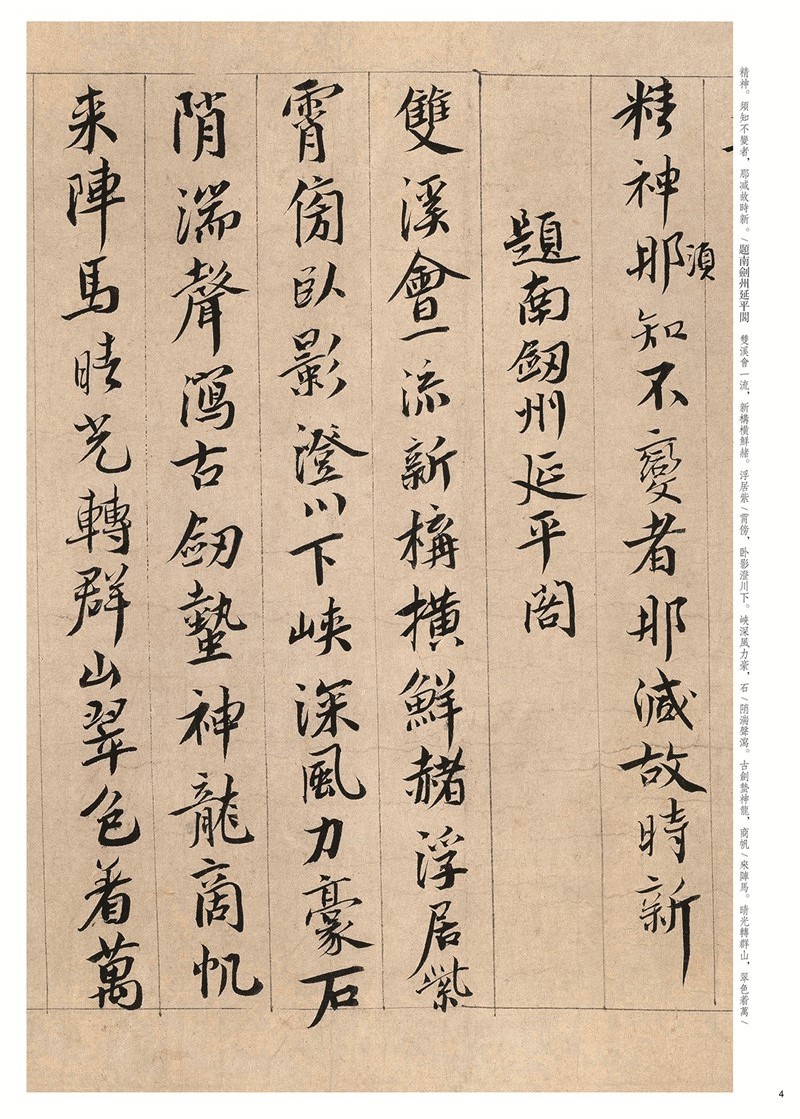 精神。須知不變者，那减故時新。/題南劍州延平閣　雙溪會一流，新構橫鮮赭。浮居紫/霄傍，卧影澄川下。峽深風力豪，石/陗湍聲瀉。古劍蟄神龍，商帆/來陣馬。晴光轉群山，翠色着萬/
精神那須知不變者那減故時新
題南劒州延平閣
雙溪會一流新構橫鮮赭浮居紫
霄傍臥影澄川下峽深風力豪石
陗湍聲瀉古劒蟄神龍商帆
来陣馬晴光轉群山翠色着萬
4